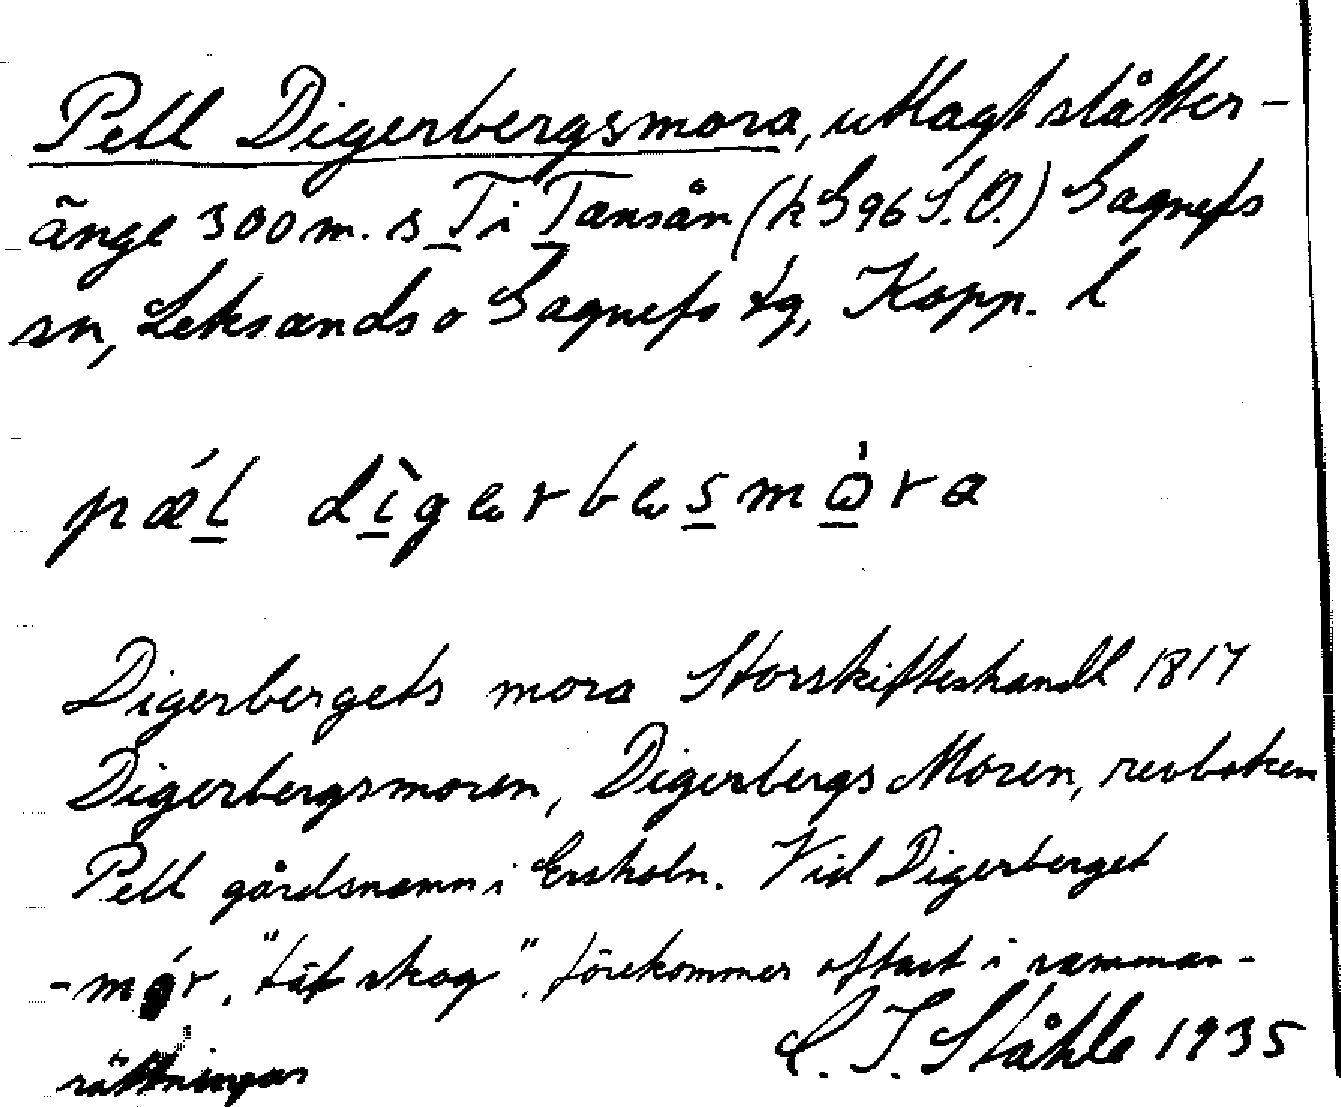 Pell Digerbergsmora, utlagt slåtter-
änge 300 m. s T i Tansån (k S 96 S.O.) Gagnefs
sn, Leksands o Gagnefs tg, Kopp. l
pǽl dìgerbesmɷ̀ra
Digerbergets mora Storskifteshandl 1817
Digerbergsmoren, Digerbergs Moren, revboken
Pell gårdsnamn i Ersholn. Vid Digerberget
-mór, "tät skog", förekommer oftast i samman-
sättningar
C. I. Ståhle 1935